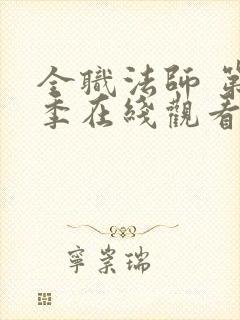 全職法師 第
季在綫觀看
寧崇瑞